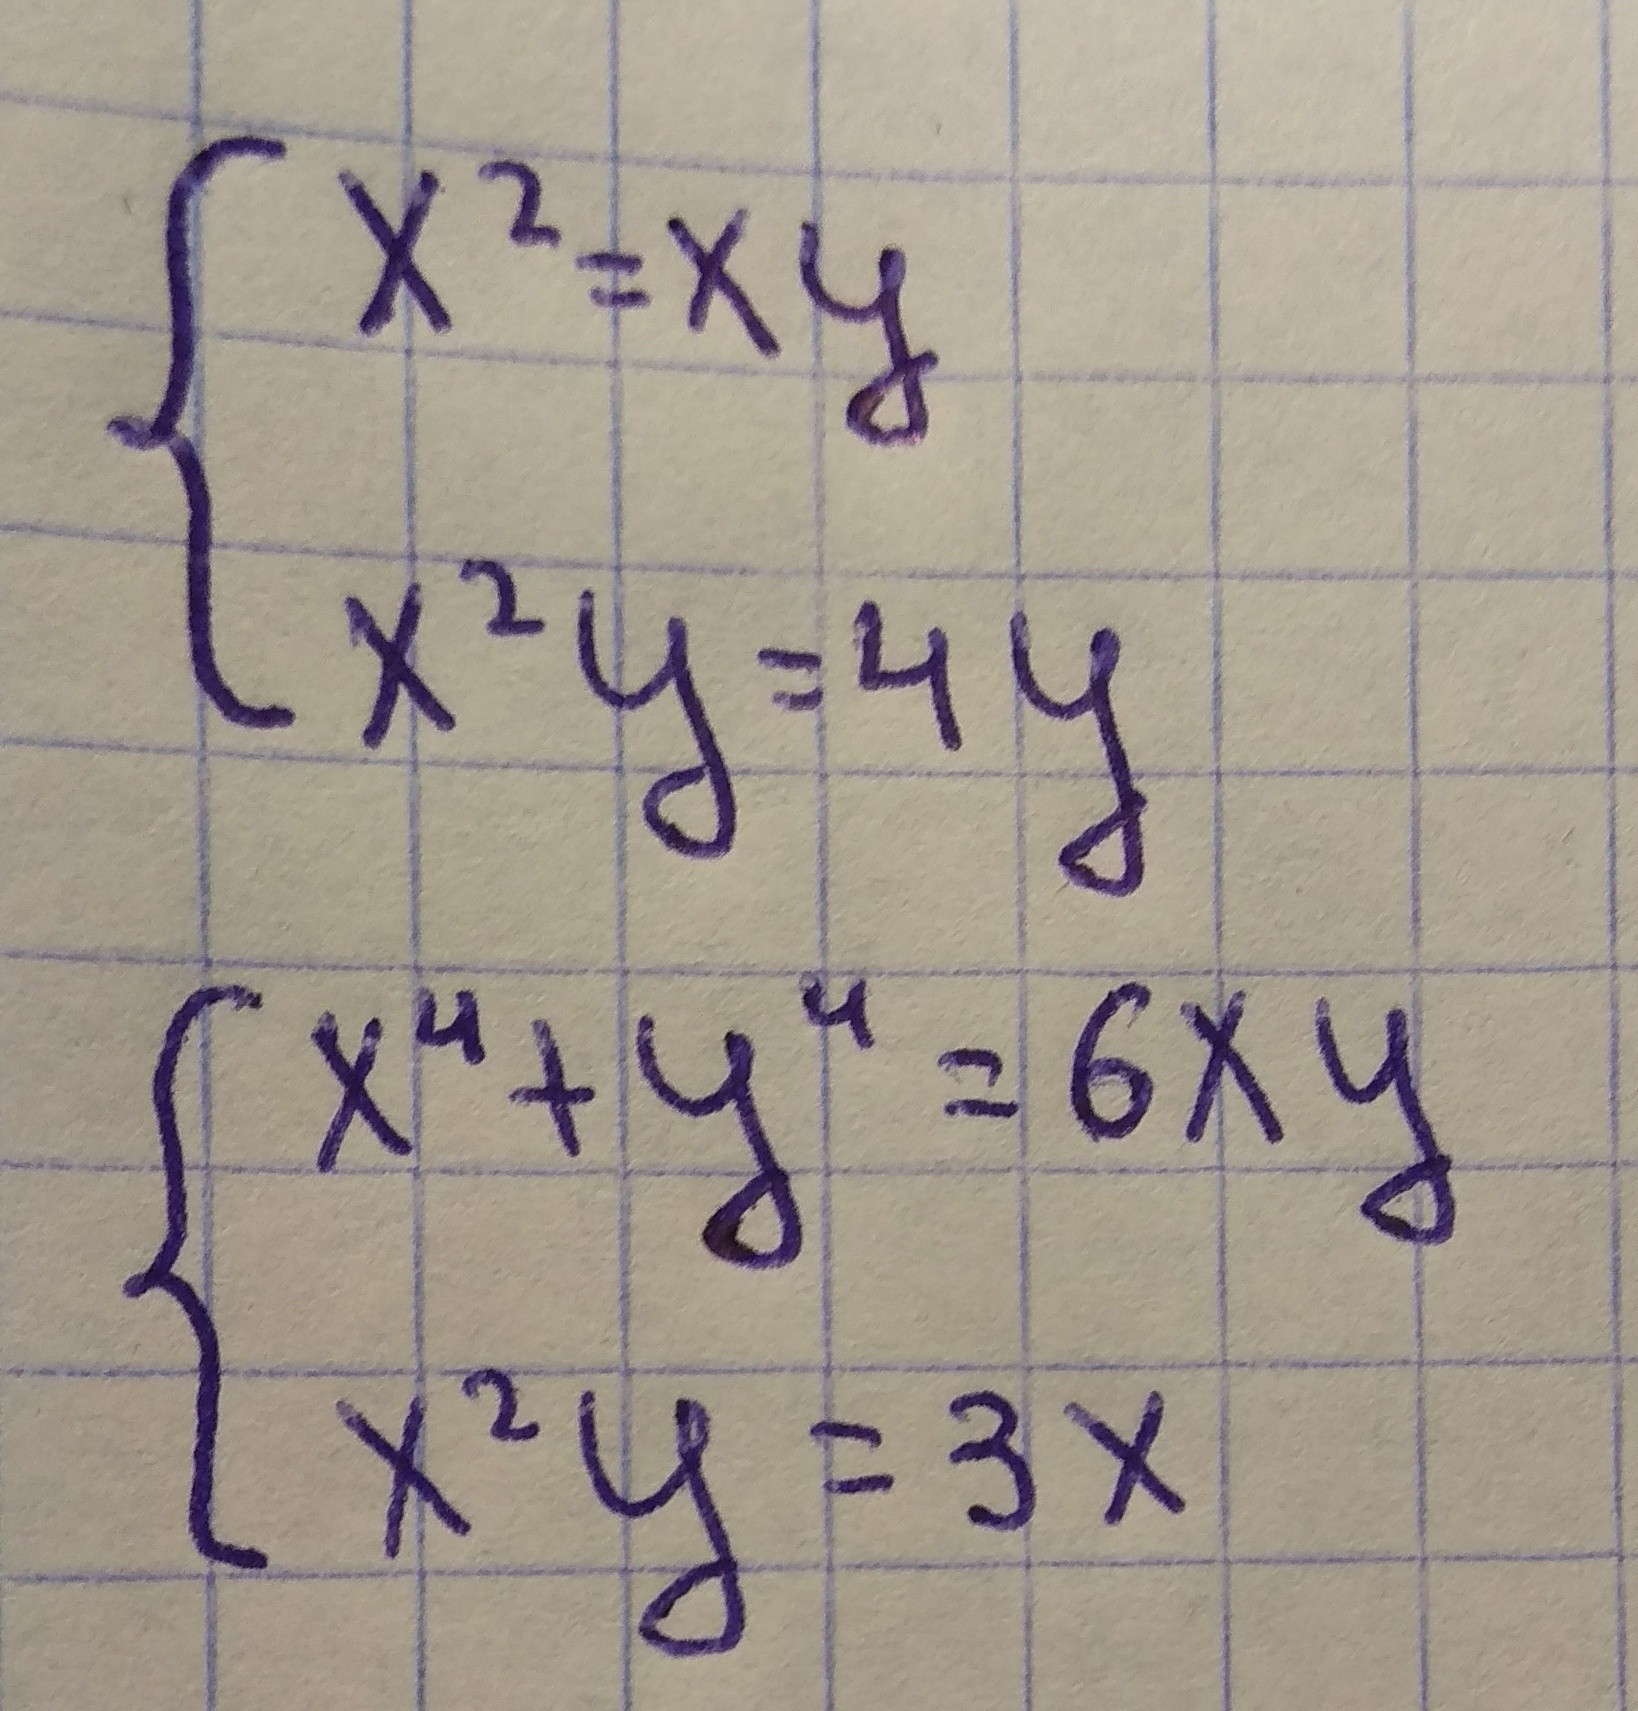 x² = xy
x²y = 4y
x⁴ + y⁴ = 6xy
x²y = 3x